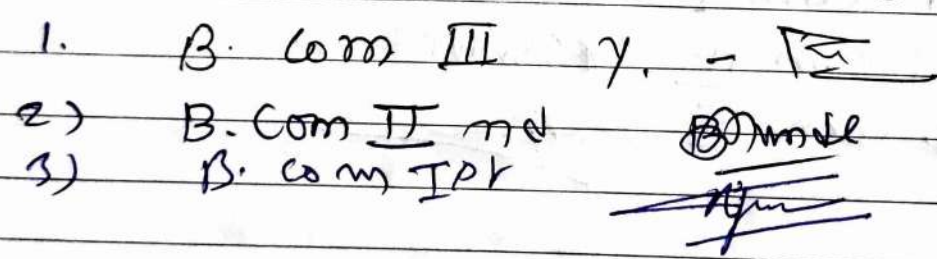 1. B. Com III y. -
2) B. Com II nd
3) B. Com I